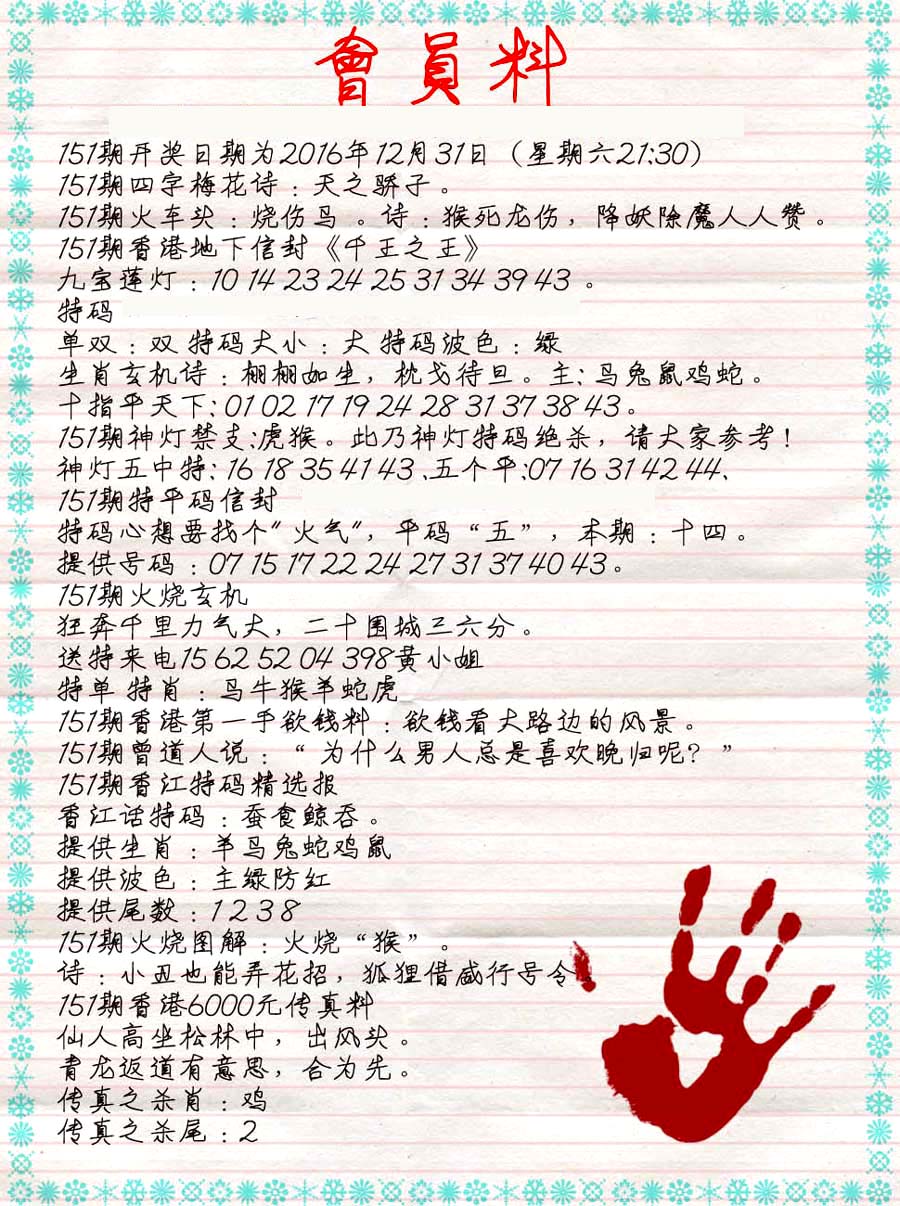 會員料
151期开奖日期为2016年12月31日（星期六21:30）
151期四字梅花诗：天之骄子。
151期火车头：烧伤马 。诗：猴死龙伤，降妖除魔人人赞 。
151期香港地下信封《千王之王》
九宝莲灯：10 14 23 24 25 31 34 39 43 。
特码
单双：双 特码大小：大 特码波色：绿
生肖玄机诗：栩栩如生，枕戈待旦。主: 马兔鼠鸡蛇。
十指平天下: 01 02 17 19 24 28 31 37 38 43。
151期神灯禁支:虎猴。此乃神灯特码绝杀，请大家参考！
神灯五中特: 16 18 35 41 43 、五个平:07 16 31 42 44、
151期特平码信封
特码心想要找个“火气”，平码“五”，本期：十四。
提供号码：07 15 17 22 24 27 31 37 40 43。
151期火烧玄机
狂奔千里力气大，二十围城三六分。
送特来电15 62 52 04 398黄小姐
特单 特肖：马牛猴羊蛇虎
151期香港第一手欲钱料：欲钱看大路边的风景。
151期曾道人说：“ 为什么男人总是喜欢晚归呢？”
151期香江特码精选报
香江话特码：蚕食鲸吞。
提供生肖：羊马兔蛇鸡鼠
提供波色：主绿防红
提供尾数：1 2 3 8
151期火烧图解：火烧“猴”。
诗：小丑也能弄花招，狐狸借威行号令
151期香港6000元传真料
仙人高坐松林中，出风头。
青龙返道有意思，合为先。
传真之杀肖：鸡
传真之杀尾：2